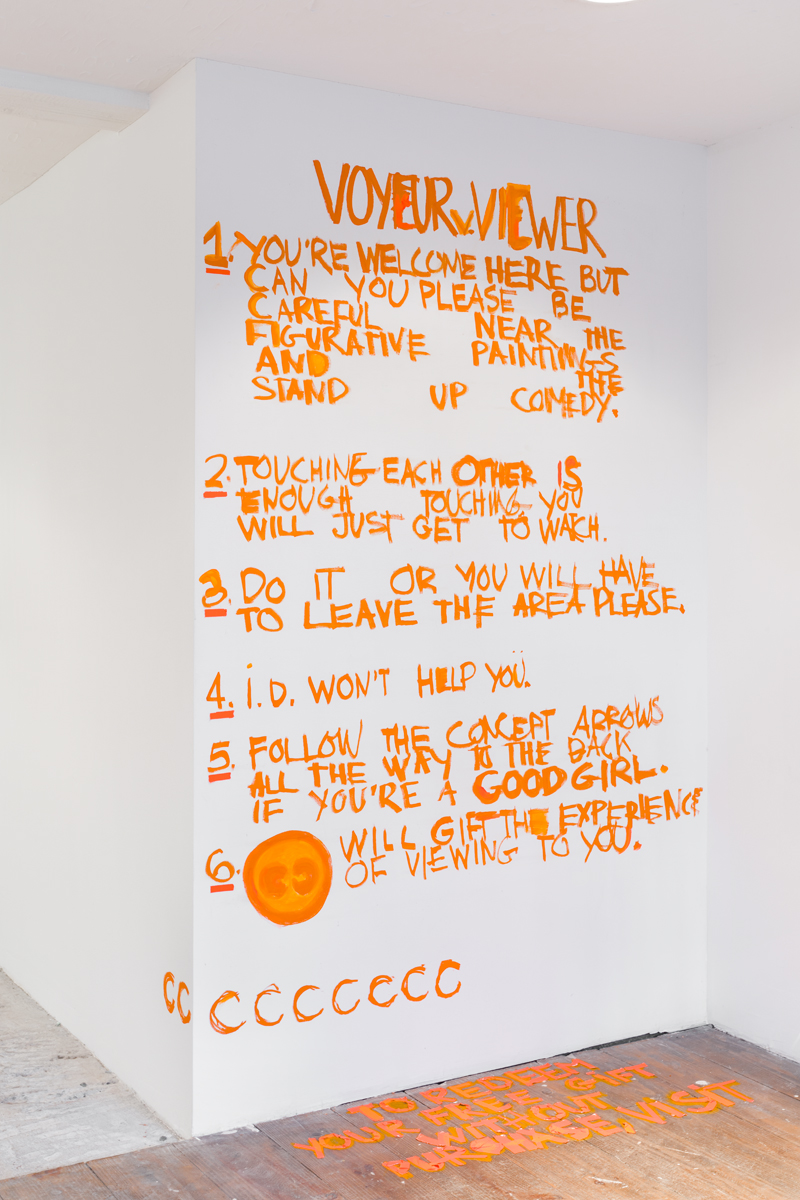 VOYEUR v. VIEWER
1. YOU'RE WELCOME HERE BUT
CAN YOU PLEASE BE
CAREFUL NEAR THE
FIGURATIVE PAINTINGS
AND THE
STAND UP COMEDY.
2. TOUCHING EACH OTHER IS
ENOUGH TOUCHING. YOU
WILL JUST GET TO WATCH.
3. DO IT OR YOU WILL HAVE
TO LEAVE THE AREA PLEASE.
4. i.D. WON'T HELP YOU.
5. FOLLOW THE CONCEPT ARROWS
ALL THE WAY TO THE BACK
IF YOU'RE A GOOD GIRL.
6. WILL GIFT THE EXPERIENCE
OF VIEWING TO YOU.
CC CCCCCCC
TO REDEEM
YOUR FREE GIFT
WITHOUT
PURCHASE, VISIT